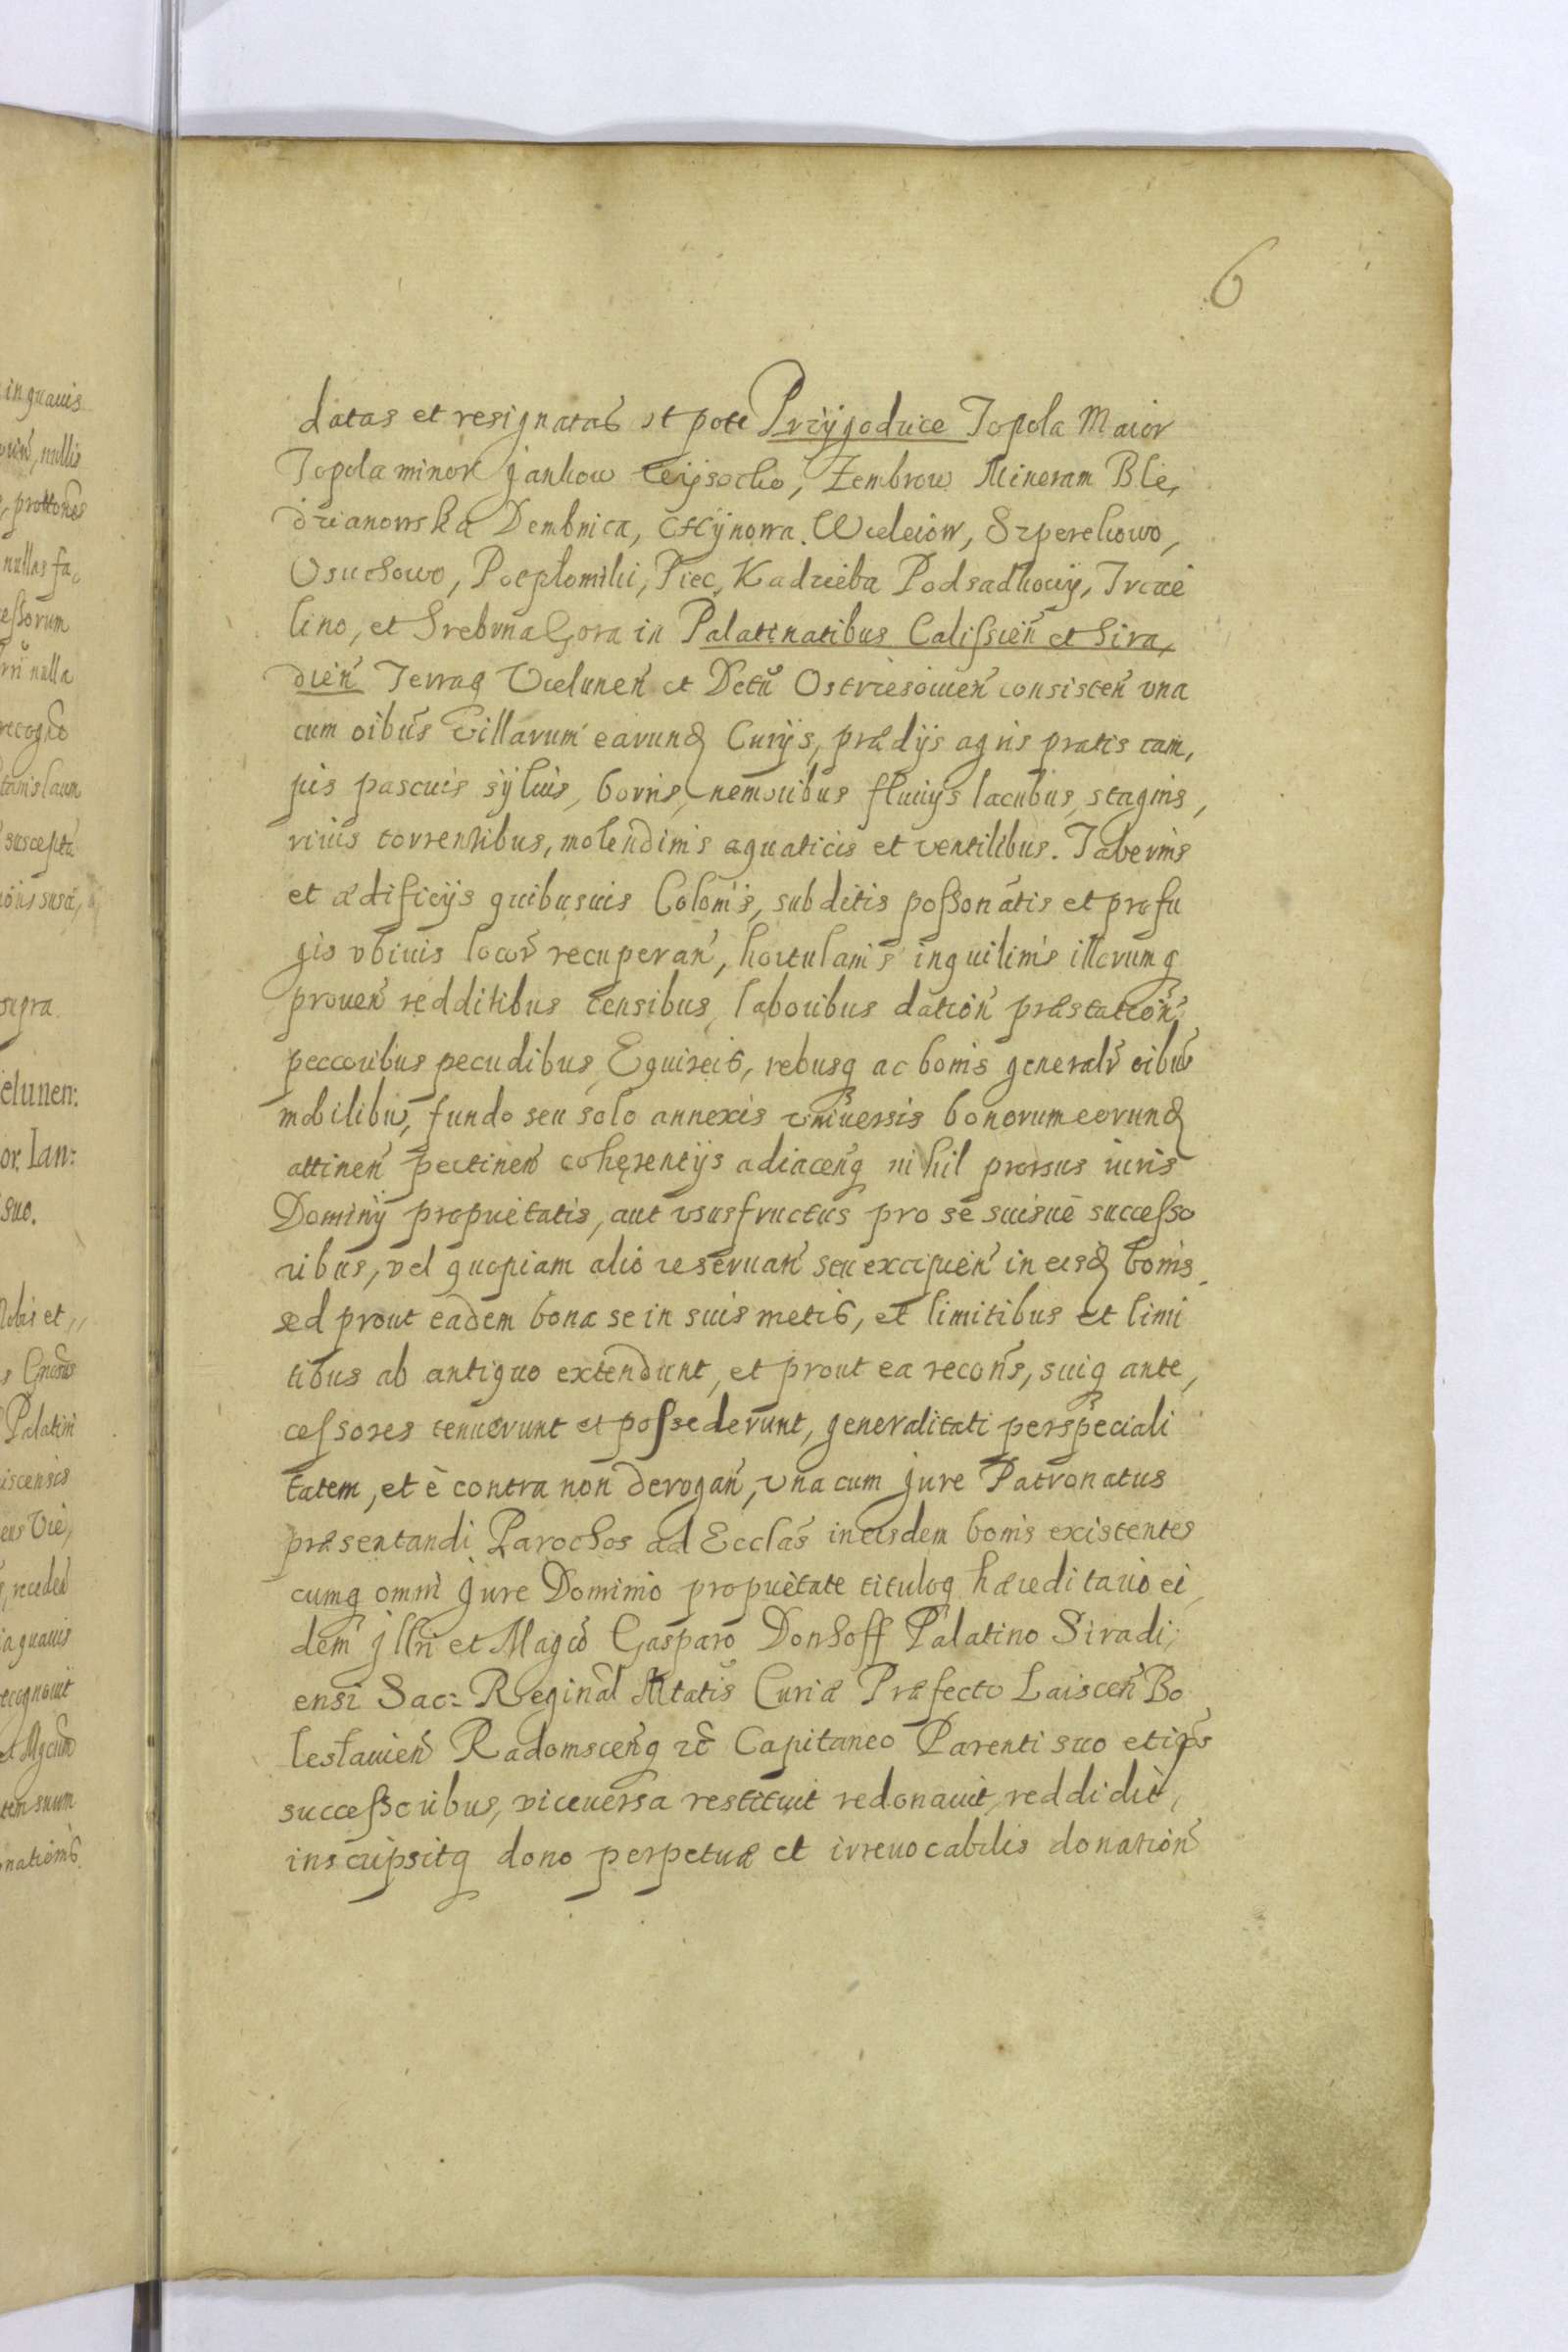 6
datas et resignatas ut pote Przÿgodzice Topola Maior
Topola minor Jankow Wÿsocko, Zembrow Mineram Ble,
dzianowska Dembnica, Chÿnowa. Wieleiow, Szperekowo,
Osuchowo, Poeplomiki, Piec, Kadzieba Podsadkowÿ, Trcae
lino, et SrebrnaGora in Palatinatibus Calissień et Sira,
dień Terraq Vielunen̄ et Dctū Ostrzesouień consisteń una
cum oībus villarum earund Curijs, prædijs agris pratis cam,
pis pascuis sÿluis, borris, nemoribus fluuijs lacubus, stagnis,
riuis torrentibus, molendinis aquaticis et ventilibus. Tabernis
et ædificijs quibusuis Colonis, subditis possonātis et profu
gis vbiuis locor̄ recuperan̄, hortulanis inquilinis illorumq
prouen̄ redditibus censibus, laboribus dation̄ præstation̄,
peccoribus pecudibus, Equireis, rebusq ac bonis generalr̄ oibus̄
mobilibus̄, fundo seu solo annexis vniuersis bonorum eorund
attinen̄ pertinen̄ cohęrentijs adiacen̄q nihil prorsus iuris
Dominÿ proprietatis, aut vsusfructus pro se suisue successo
ribus, vel quopiam alio reseruan̄ seu excipien̄ in eisd bonis
sed prout eadem bona se in suis metis, et limitibus et limi
tibus ab antiquo extendunt, et prout ea recon̄s, suiq ante,
cessores tenuerunt et possederunt, generalitati per speciali
tatem, et è contra non derogan̄, vna cum jure Patronatus
præsentandi Parochos ad Ecclās in eisdem bonis existentes
cumq omni Jure Dominio proprietate tituloq hæreditario ei,
dem Jllri et Magco Gasparo Donhoff Palatino Siradi,
ensi Sac: Reginal Mtatis Curiæ Præfecto Laiscen̄ Bo
leslauien̄ Radomscen̄q zc̄ Capitaneo Parenti suo et ips̄
successoribus, viceuersa restituit redonauit, reddidit,
inscripsitq dono perpetuæ et irreuocabilis donation̄